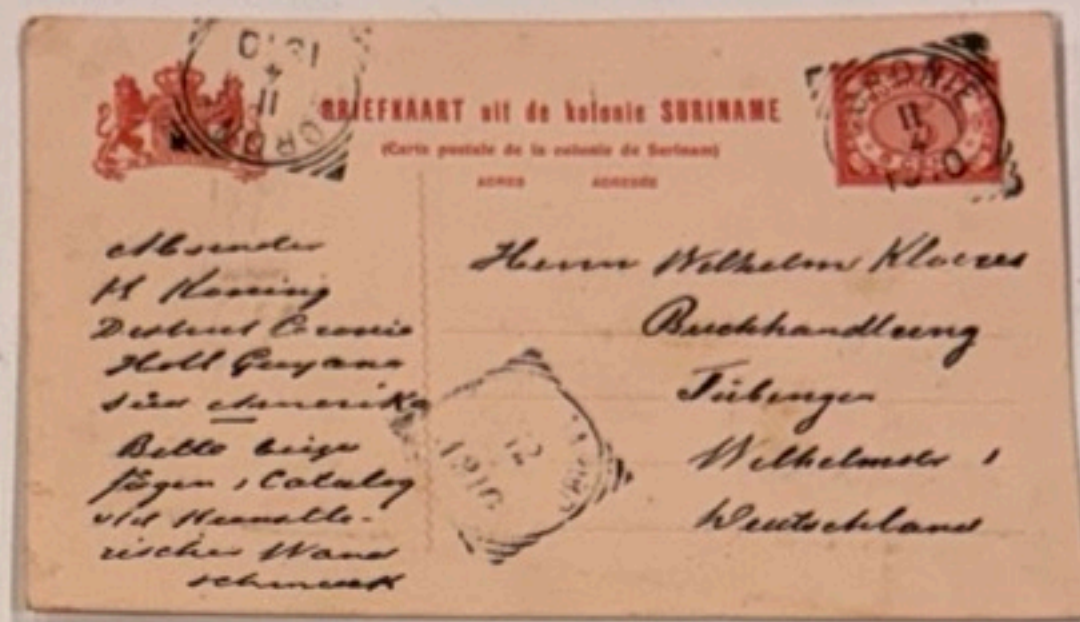 BRIEFKAART uit de kolonie SURINAME
(Carte postale de la colonie de Surinam)
ADRES ADRESSE
CORONIE
11
4
1910
5
CENT
1910
4
11
12
1910
Absender
H Koning
District Coronie
Holl Guyana
Süd Amerika
Bitte
Catalog
Künstle-
rischer Wand
schmuck
Herrn Wilhelm Kloeres
Buchhandlung
Tübingen
Wilhelmstr 1
Deutschland